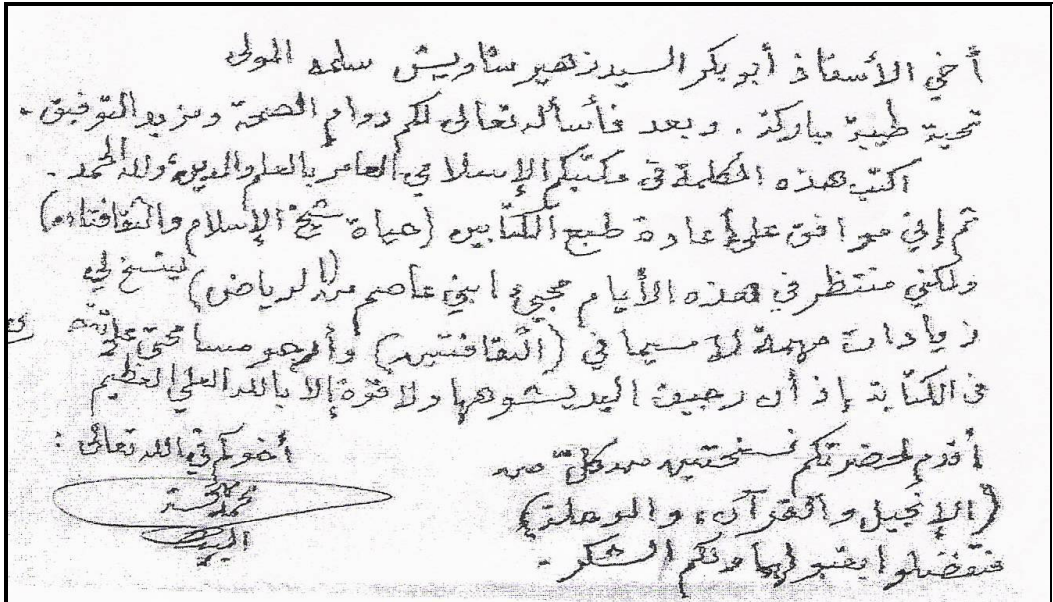 أخي الأستاذ أبو بكر السيد زهير شاويش سلمه المولى
تحية طيبة مباركة . وبعد فأسأله تعالى لكم دوام الصحة ومزيد التوفيق .
اكتب هذه الكلمة في مكتبكم الإسلامي العامر بالعلم والدين ولله الحمد .
ثم إني موافق على إعادة طبع الكتابين (حياة شيخ الإسلام والثقافتان)
ولكني منتظر في هذه الأيام مجيء ابني عاصم من (الرياض) لينسخ لي
زيادات مهمة لا سيما في (الثقافتين) وأرجو مسامحتي على
في الكتابة إذ أن رجيف اليد يشوهها ولا قوة إلا بالله العلي العظيم
أقدم لحضرتكم نسختين من كل من
أخوكم في الله تعالى :
(الإنجيل والقرآن، والرحلة)
محمد بهجة
البيطار
فتفضلوا بقبولهما ولكم الشكر .